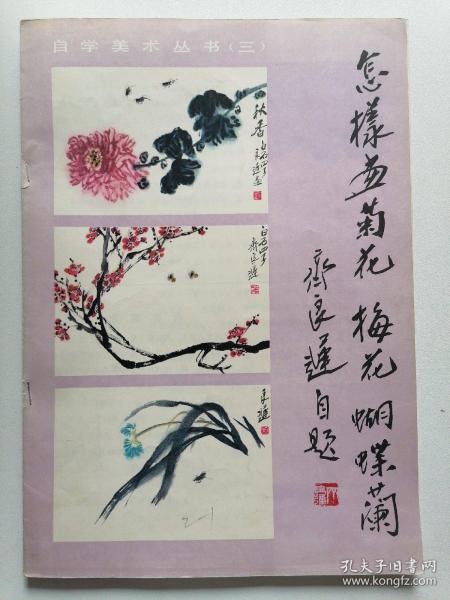 自学美术丛书(三)
怎樣画菊花 梅花 蝴蝶蘭
齊良遲自題
秋香
白石四子
良遲画
白石四子
齊良遲
良遲
孔夫子旧书网
www.kongfz.com